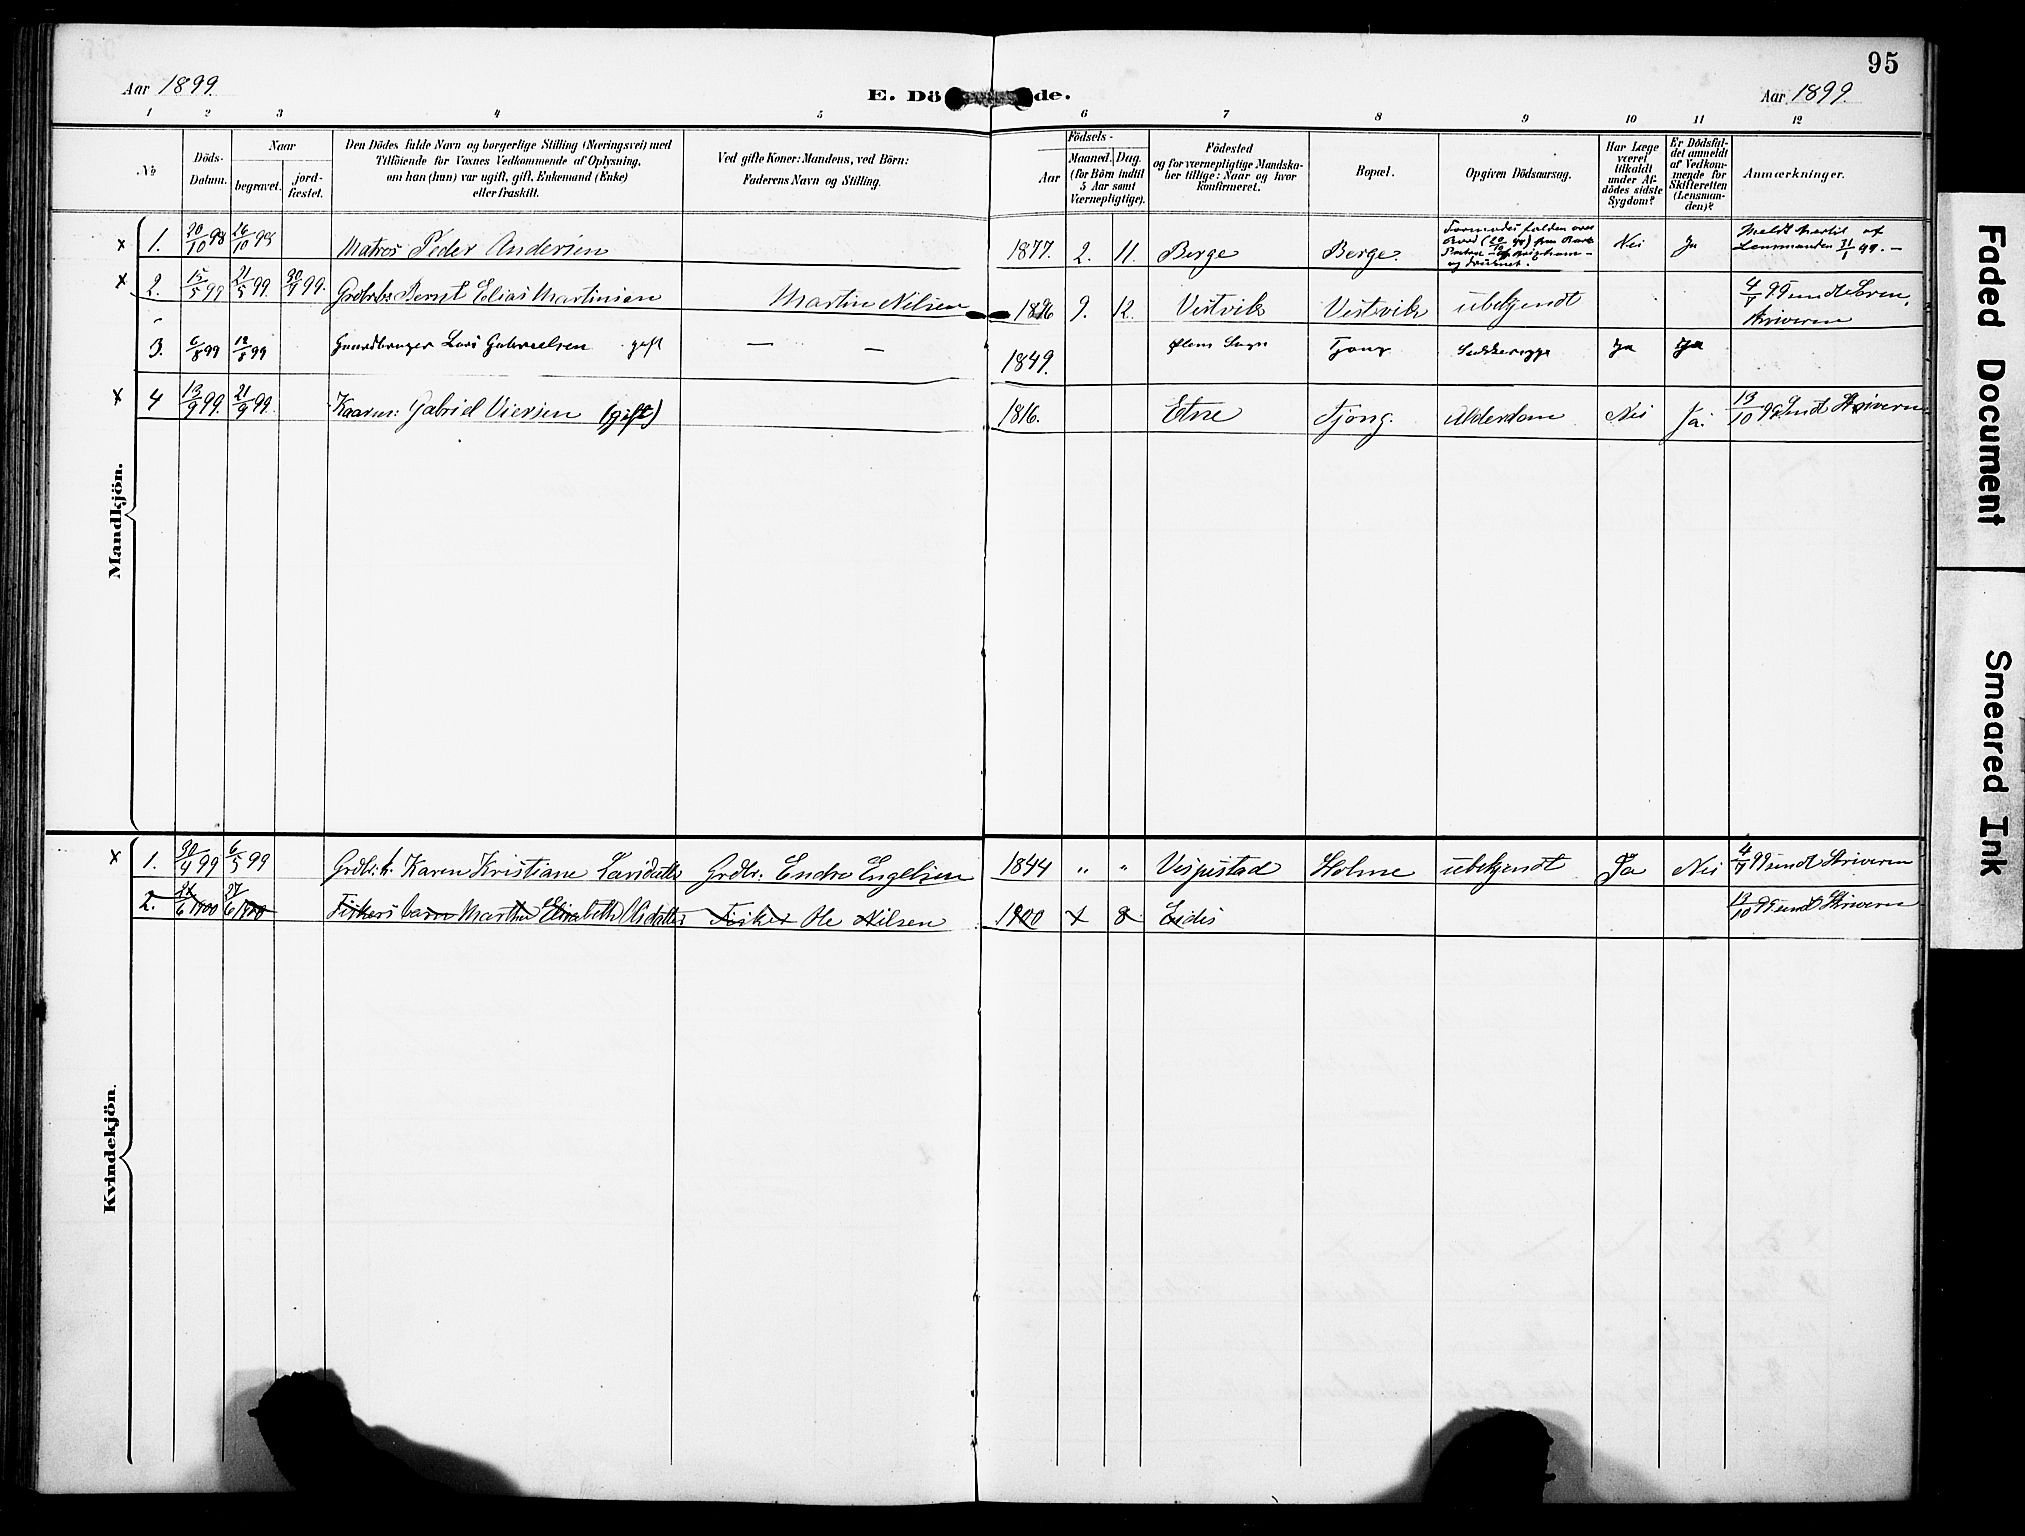 95
Aar 1899.
E. Dö de.
Aar 1899.
1 2 3 4 5 6 7 8 9 10 11 12
No
Döds-
Datum.
Naar
begravet.
jord-
fæstet.
Den Dödes fulde Navn og borgerlige Stilling (Næringsvei) med
Tilföiende for Voxnes Vedkommende af Oplysning,
om han (hun) var ugift, gift, Enkemand (Enke)
eller fraskilt.
Ved gifte Koner: Mandens, ved Börn:
Faderens Navn og Stilling.
Födsels-
Aar
Maaned. Dag.
(for Börn indtil
5 Aar samt
Værnepligtige).
Födested
og for værnepligtige Mandska-
ber tillige: Naar og hvor
konfirmeret.
Bopæl.
Opgiven Dödsaarsag.
Har Læge
været
tilkaldt
under Af-
dödes sidste
Sygdom?
Er Dödsfal-
det anmeldt
af Vedkom-
mende for
Skifteretten
(Lensman-
den)?
Anmærkninger.
Mandkjön.
x 1. 20/10 98 26/10 98 Matros Peder Andersen 1877. 2. 11. Berge Berge. Nei Ja
Lensmanden 31/1 99. —
x 2. 15/5 99 21/5 99. 30/7 99. Bernt Elias Martinsen Martin Nilsen 9. 12. Vestvik Vestvik ubekjendt 4/7 99 sendt Soren-
skriveren
3. 6/8 99 12/8 99 Gaardbruger Lars Gabrielsen gift — — 1849. Ølens Sogn Tjong Ja Ja
x 4 13/9 99. 21/9 99. Kaarm: Gabriel Viersen (gift) 1816. Etne Tjong. Alderdom Nei Ja. 13/10 99 sendt Skriveren
Kvindekjön.
x 1. 30/4 99 6/5 99 Grdbr. h. Karen Kristiane Larsdatter Grdbr. Endre Engelsen 1844 " " Holme ubekjendt Ja Nei 4/7 99 sendt Skriveren
2. 6 1900 27/6 1900 Fiskers barn Martha Elisabeth Olsdatter Fisker Ole Nilsen 1900 x 8 Eides 13/10 99 sendt Skriveren
Faded Document
Smeared Ink